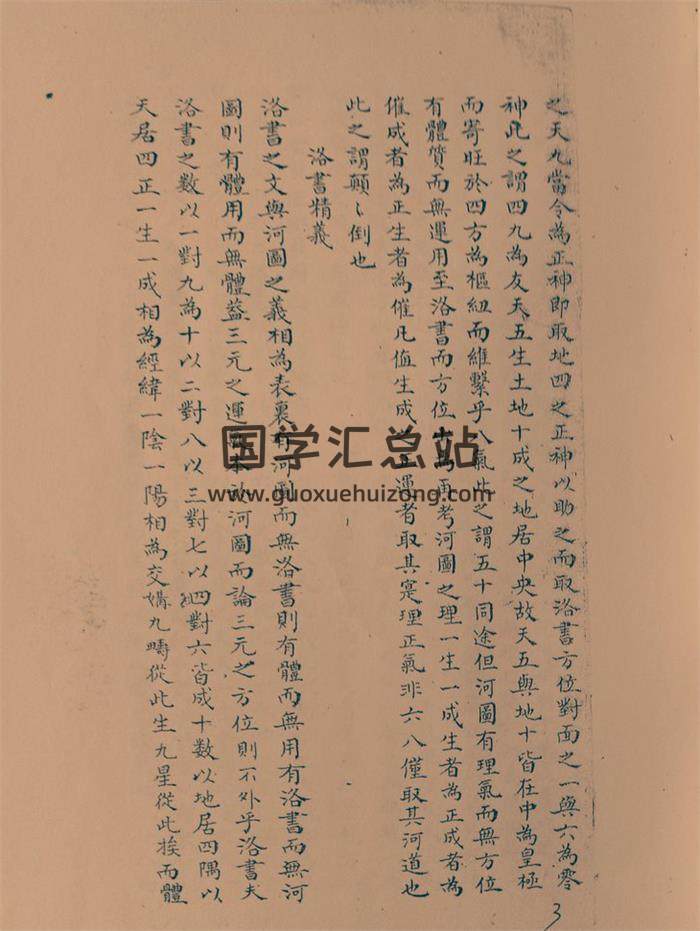 之天九當令為正神即取地四之正神以助之而取洛書方位對面之一與六為零
神此之謂四九為友天五生土地十成之地居中央故天五與地十皆在中為皇極
而寄旺於四方為樞紐而維繫乎八氣此之謂五十同途但河圖有理氣而無方位
有體質而無運用至洛書而方位再考河圖之理一生一成生者為正成者為
催成者為正生者為催凡值生成正運者取其寔理正氣非六八僅取其河道也
此之謂顛〻倒也
洛書精義
洛書之文與河圖之義相為表裏有河圖而無洛書則有體而無用有洛書而無河
圖則有體用而無體蓋三元之運本於河圖而論三元之方位則不外乎洛書夫
洛書之數以一對九為十以二對八以三對七以四對六皆成十數以地居四隅以
天居四正一生一成相為經緯一陰一陽相為交媾九疇從此生九星從此挨而體
3
国学汇总站
www.guoxuehuizong.com